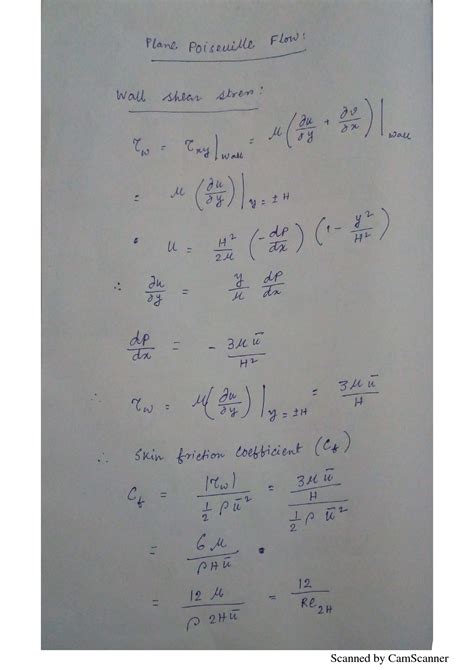 Plane Poiseuille Flow:
Wall shear stress:
τ_w = τ_xy|_wall = μ(∂u/∂y + ∂v/∂x)|_wall
= μ(∂u/∂y)|_y=±H
• u = H²/2μ (-dP/dx) (1 - y²/H²)
∴ ∂u/∂y = y/μ dP/dx
dP/dx = - 3μū/H²
∴ τ_w = μ(∂u/∂y)|_y=±H = 3μū/H
∴ Skin friction coefficient (C_f)
C_f = |τ_w| / ½ρū² = 3μū/H / ½ρū²
= 6μ/ρHū
= 12μ/ρ2Hū = 12/Re_2H
Scanned by CamScanner